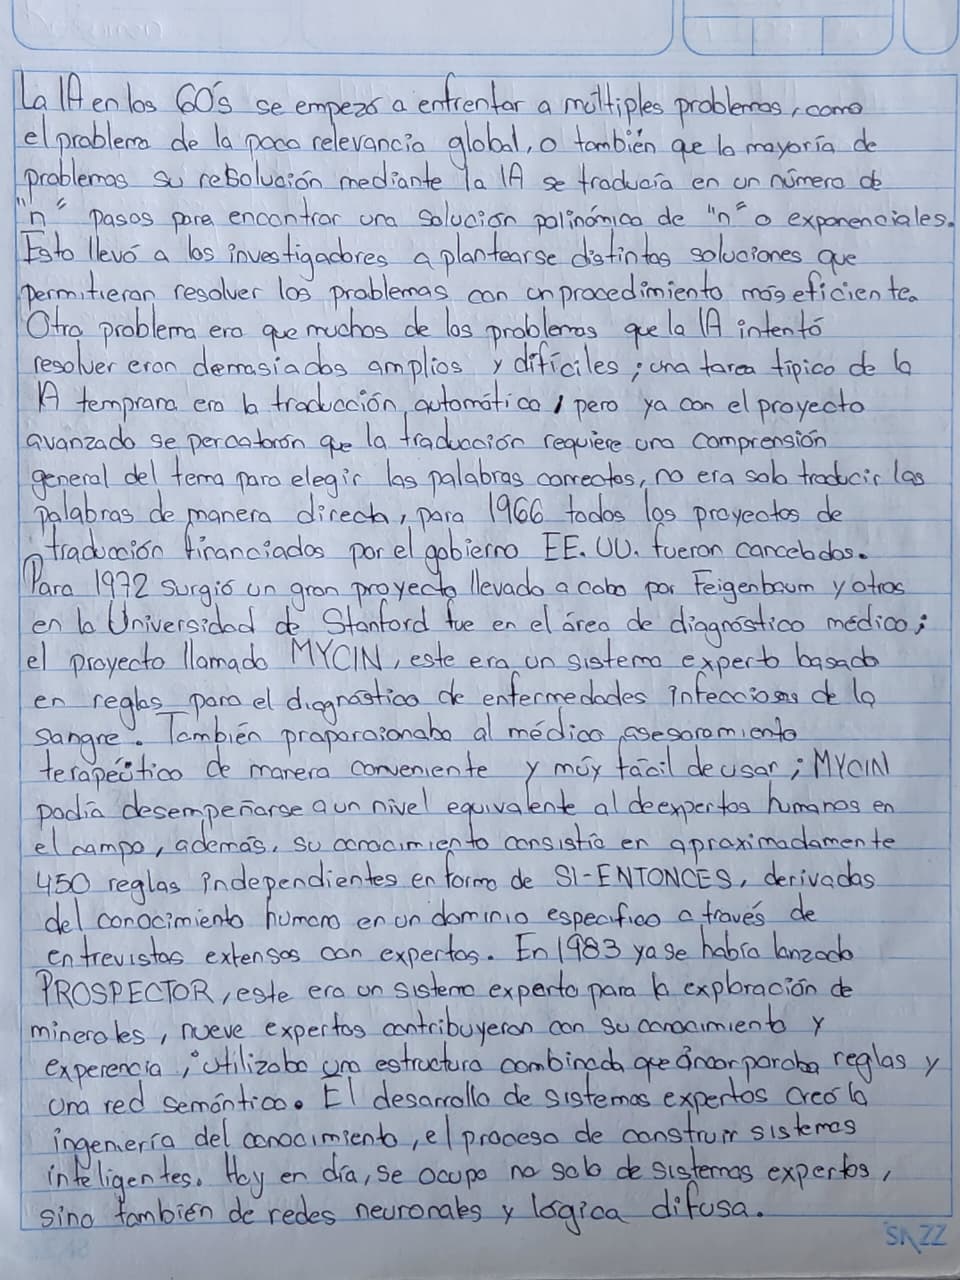 La IA en los 60's se empezó a enfrentar a múltiples problemas, como
el problema de la poca relevancia global, o también que la mayoría de
problemas su resolución mediante la IA se traducía en un número de
"n" pasos para encontrar una solución polinómica de "n" o exponenciales.
Esto llevó a los investigadores a plantearse distintas soluciones que
permitieran resolver los problemas con un procedimiento más eficiente.
Otro problema era que muchos de los problemas que la IA intentó
resolver eran demasiados amplios y difíciles; una tarea típico de la
IA temprana era la traducción automática, pero ya con el proyecto
avanzado se percatarón que la traducción requiere una comprensión
general del tema para elegir las palabras correctas, no era solo traducir las
palabras de manera directa, para 1966 todos los proyectos de
traducción financiados por el gobierno EE.UU. fueron cancelados.
Para 1972 surgió un gran proyecto llevado a cabo por Feigenbaum y otros
en la Universidad de Stanford fue en el área de diagnóstico médico;
el proyecto llamado MYCIN, este era un sistema experto basado
en reglas para el diagnóstico de enfermedades infecciosas de la
sangre. También proporcionaba al médico asesoramiento
terapéutico de manera conveniente y múy fácil de usar; MYCIN
podía desempeñarse a un nivel equivalente al de expertos humanos en
el campo, además, su conocimiento consistía en aproximadamente
450 reglas independientes en forma de SI-ENTONCES, derivadas
del conocimiento humano en un dominio especifico a través de
entrevistas extensas con expertos. En 1983 ya se había lanzado
PROSPECTOR, este era un sistema experto para la exploración de
minerales, nueve expertos contribuyeron con su conocimiento y
experencia; utilizaba una estructura combinada que incorporaba reglas y
una red semántica. El desarrollo de sistemas expertos creó la
ingeniería del conocimiento, el proceso de construir sistemas
inteligentes. Hoy en día, se ocupa no solo de sistemas expertos,
sino también de redes neuronales y lógica difusa.